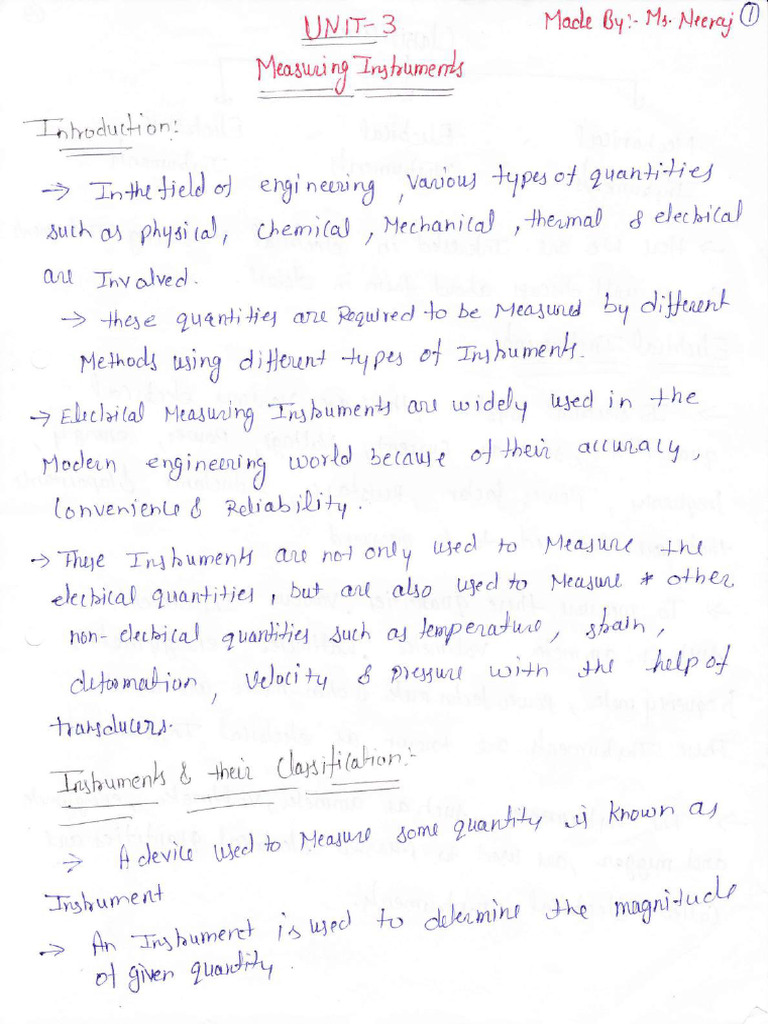 UNIT-3
Made By:- Ms. Neeraj ①
Measuring Instruments
Introduction:
→ In the field of engineering, various types of quantities
such as physical, chemical, Mechanical, thermal & electrical
are Involved.
→ these quantities are Required to be Measured by different
Methods using different types of Instruments.
→ Electrical Measuring Instruments are widely used in the
Modern engineering world because of their accuracy,
Convenience & Reliability.
→ These Instruments are not only used to Measure the
electrical quantities, but are also used to Measure * other
non-electrical quantities such as temperature, strain,
deformation, velocity & pressure with the help of
transducers.
Instruments & their Classification:-
→ A device used to Measure some quantity is known as
Instrument
→ An Instrument is used to determine the magnitude
of given quantity.